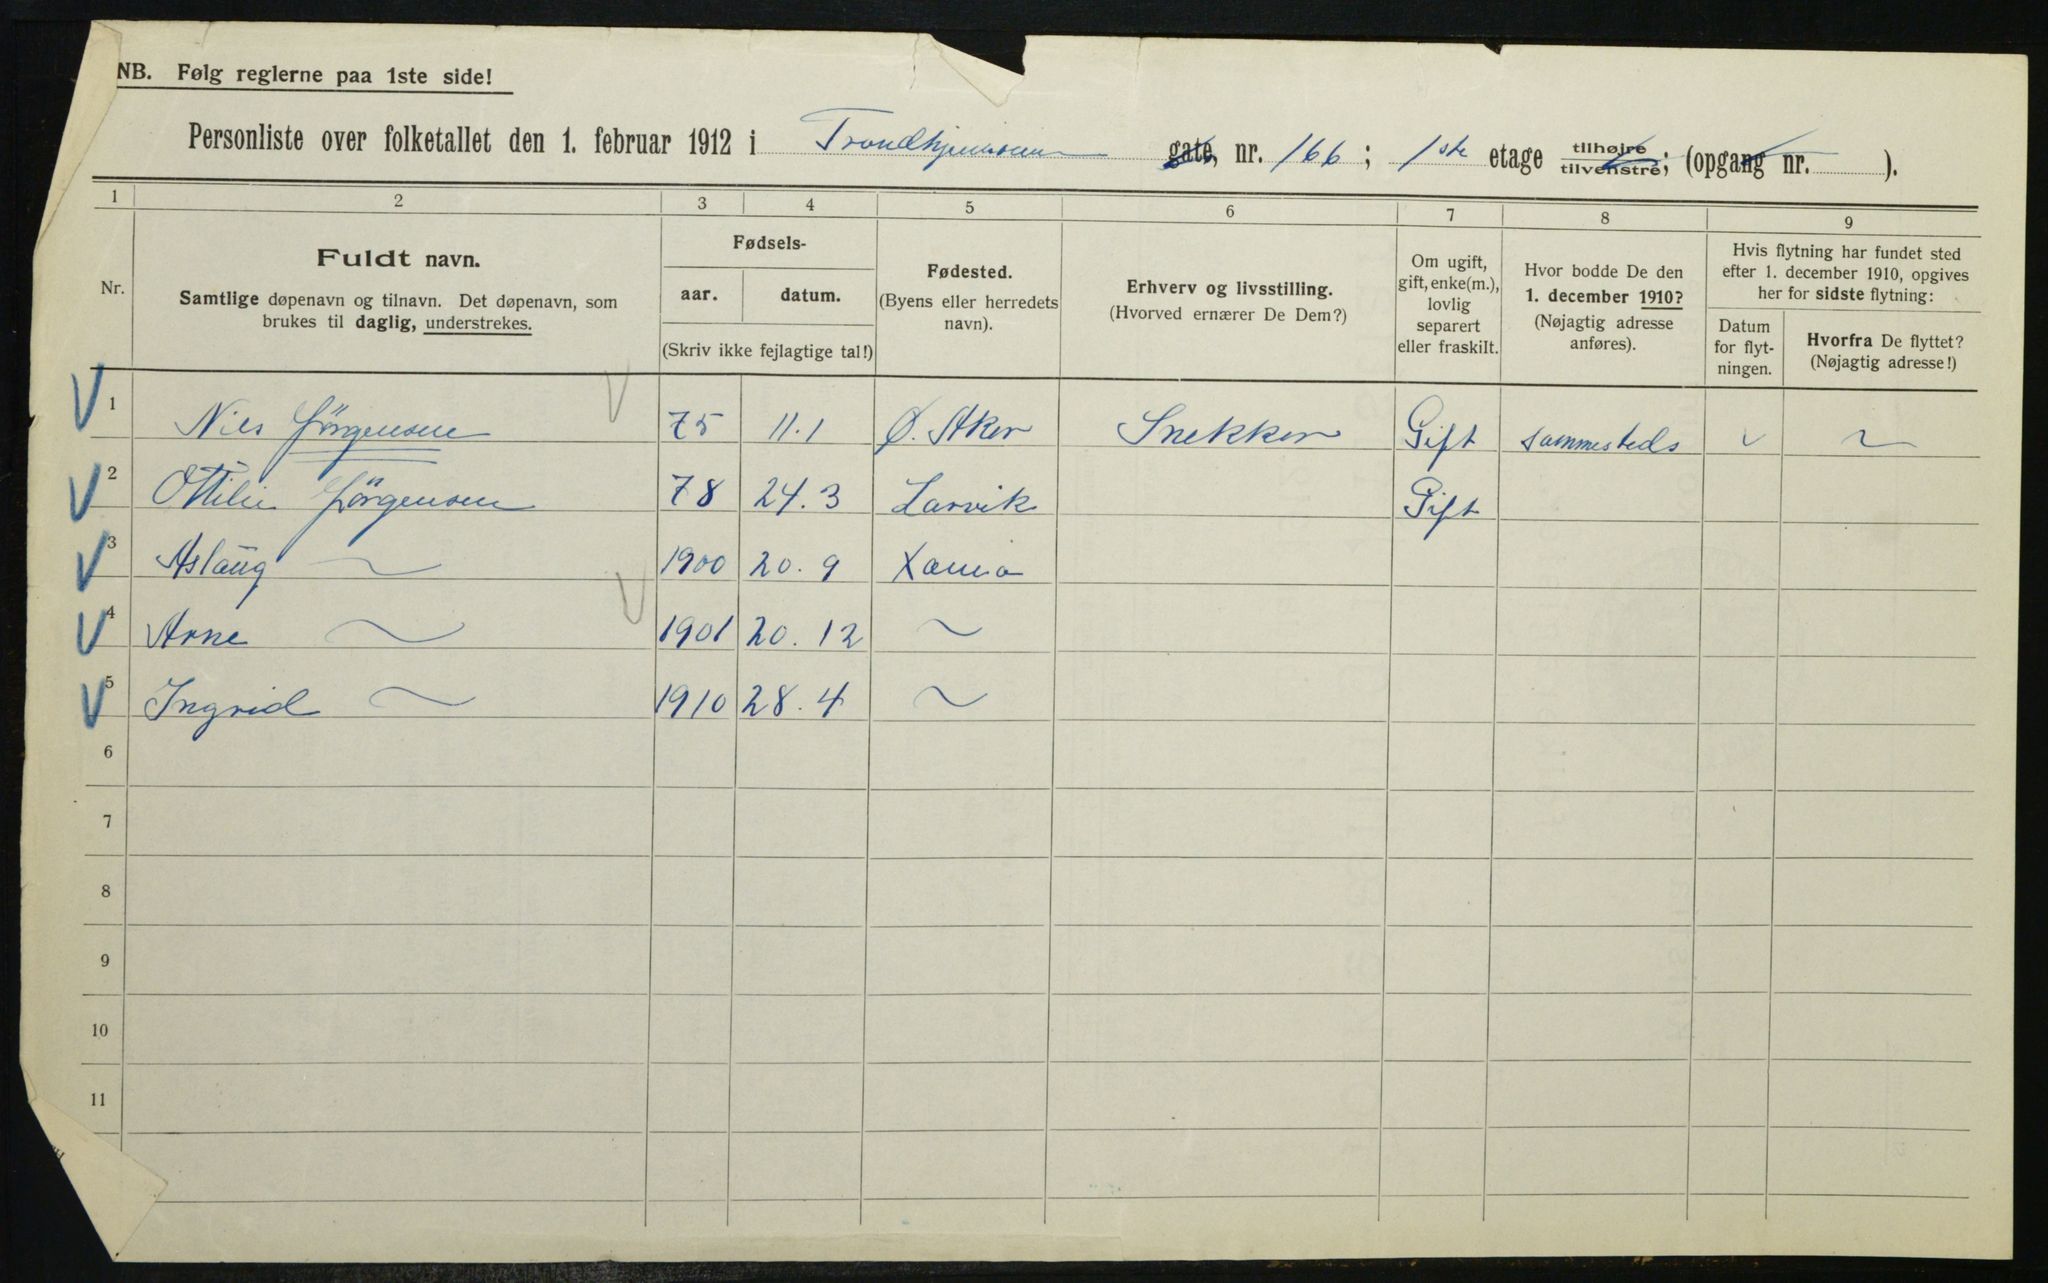 NB. Følg reglerne paa 1ste side!
Personliste over folketallet den 1. februar 1912 i Trondhjemsveien gate, nr. 166; 1ste etage tilhøjre tilvenstre; (opgang nr. ).
1 2 3 4 5 6 7 8 9
Nr.
Fuldt navn.
Samtlige døpenavn og tilnavn. Det døpenavn, som
brukes til daglig, understrekes.
Fødsels-
aar. datum.
(Skriv ikke fejlagtige tal!)
Fødested.
(Byens eller herredets
navn).
Erhverv og livsstilling.
(Hvorved ernærer De Dem?)
Om ugift,
gift, enke(m.),
lovlig
separert
eller fraskilt.
Hvor bodde De den
1. december 1910?
(Nøjagtig adresse
anføres).
Hvis flytning har fundet sted
efter 1. december 1910, opgives
her for sidste flytning:
Datum
for flyt-
ningen.
Hvorfra De flyttet?
(Nøjagtig adresse!)
1 Nils Jörgensen 75 11.1 Ø. Aker Snekker Gift sammesteds
2 Ottilie Jörgensen 78 24.3 Larvik Gift
3 Aslaug ~ 1900 20.9 Xania
4 Arne ~ 1901 20.12 ~
5 Ingrid ~ 1910 28.4 ~
6
7
8
9
10
11